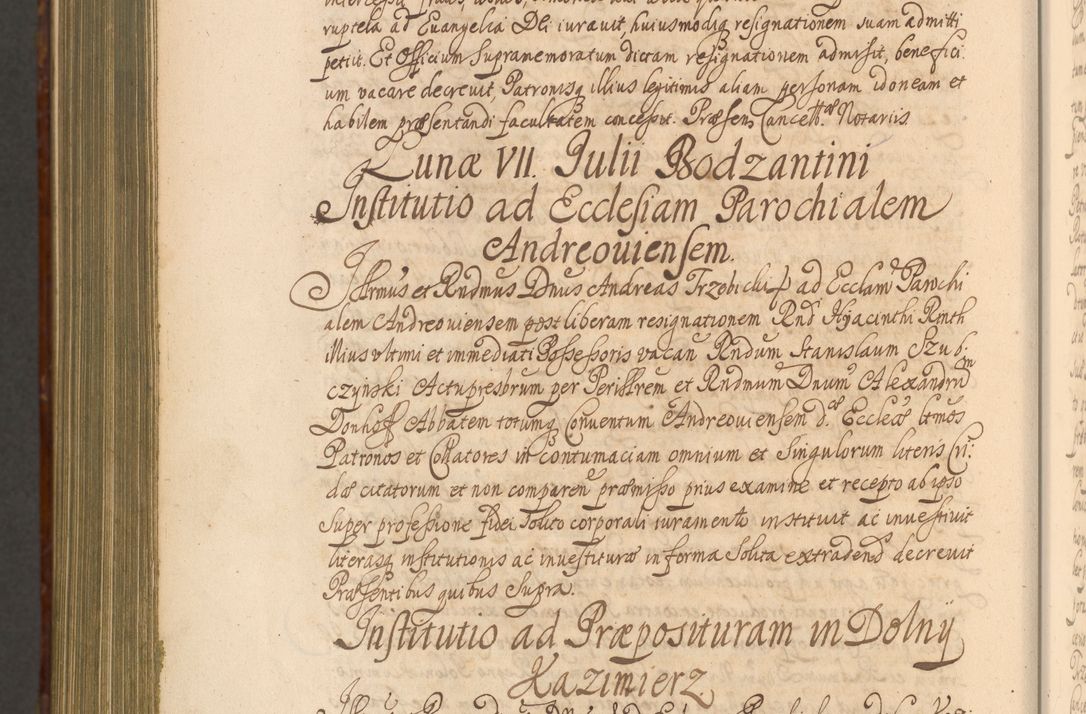 ruptela ad Euangelia Dei iurauit, huiusmodiq resignationem suam admitti
petiit. Et Officium Supranemoratum dictam resignationem admisit, benefici
um vacare decreuit, Patronisq illius legitimis aliam personam idoneam et
habilem præsentandi facultatem concessit. Præsen. Cancell. Notariis
Lunæ VII. Julii Bodzantini
Institutio ad Ecclesiam Parochialem
Andreouiensem.
Illrmus et Rndmus Dnus Andreas Trzebicki ad Ecclam Parochi
alem Andreouiensem post liberam resignationem Rnd Hyacinthi
illius vltimi et immediati Possessoris vacan Rndum Stanislaum Szub
czynski Actu presbrum per Perillrem et Rndmum Dnum Alexandrum
Donhoff Abbatem totumq Conuentum Andreouiensem d. Eccleæ ltmos
Patronos et Collatores in contumaciam omnium et Singulorum literis Cri:
dæ citatorum et non comparen præmisso prius examine et recepto ab ipso
super professione fidei solito corporali iuramento instituit ac inuestiuit
literasq institutionis ac inuestituræ in forma solita extradend decreuit
Præsentibus quibus supra.
Institutio ad Præposituram in Dolny
Kazimierz.